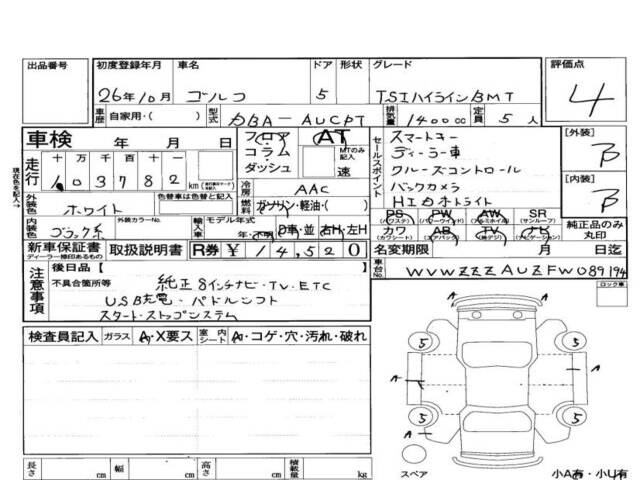 出品番号 初度登録年月 車名 ドア 形状 グレード 評価点
26年10月 ゴルフ 5 TSIハイラインBMT 4
車歴 自家用・( ) 型式 DBA-AUCPT 排気量 1400cc 定員 5人
車検 年 月 日 フロア コラム ダッシュ AT MTのみ記入 速
走行 十 万 千 百 十 一
103782 km
冷房 AAC
燃料 ガソリン・軽油・( )
外装色 ホワイト 色替車は色替と記入
内装色 ブラック系 外装カラーNo. 輸入車 モデル年式 年・不明 D車・並 右H・左H
現在色を記入→
セールスポイント
スマートキー
ディーラー車
クルーズコントロール
バックカメラ
HIDオートライト
PS (パワステ) PW (パワーウインド) AW (アルミホイル) SR (サンルーフ)
カワ (カワシート) AB (エアバック) TV (純テジ) ナビ (ナビゲーション)
[外装] B
[内装] B
純正品のみ丸印
新車保証書 ディーラー捺印あるもの 取扱説明書 R券 ¥ 14,520
名変期限 月 日迄
車台No. WVWZZZAUZFW089194
注意事項
後日品【 】
不具合箇所等 純正8インチナビ・TV・ETC
USB充電・パドルシフト
スタート・ストップシステム
ロック車
検査員記入 ガラス A・X要ス 室内シート A・コゲ・穴・汚れ・破れ
5 5
A A A
5 5
A
長さ cm 幅 cm 高さ cm 積載量 kg
スペア 小A有・小U有